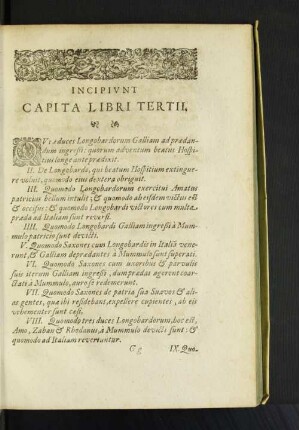 INCIPIVNT
CAPITA LIBRI TERTII,
QVòd duces Longobardorum Galliam ad prædan-
dum ingressi: quorum aduentum beatus Hospi-
tius longe ante prædixit.
II. De Longobardo, qui beatum Hospitium extingue-
re voluit, quomodo eius dextera obriguit.
III. Quomodo Longobardorum exercitui Amatus
patricius bellum intulit; & quomodo ab eisdem victus est
& occisus; & quomodo Longobardi victores cum multa
præda ad Italiam sunt reuersi.
IIII. Quomodo Longobardi Galliam ingressi à Mum-
mulo patricio sunt deuicti.
V. Quomodo Saxones cum Longobardis in Italiã vene-
runt, & Galliam deprædantes à Mummulo sunt superati.
VI. Quomodo Saxones cum vxoribus & paruulis
suis iterum Galliam ingressi, dum prædas agerent coar-
ctati à Mummulo, auro se redemerunt.
VII. Quomodo Saxones de patria sua Suauos & ali-
as gentes, qua ibi residebant, expellere cupientes, ab eis
vehementer sunt cæsi.
VIII. Quomodo tres duces Longobardorum, hoc est,
Amo, Zaban & Rhodanus, à Mummulo deuicti sunt: &
quomodo ad Italiam reuertuntur.
G g
IX. Quo-